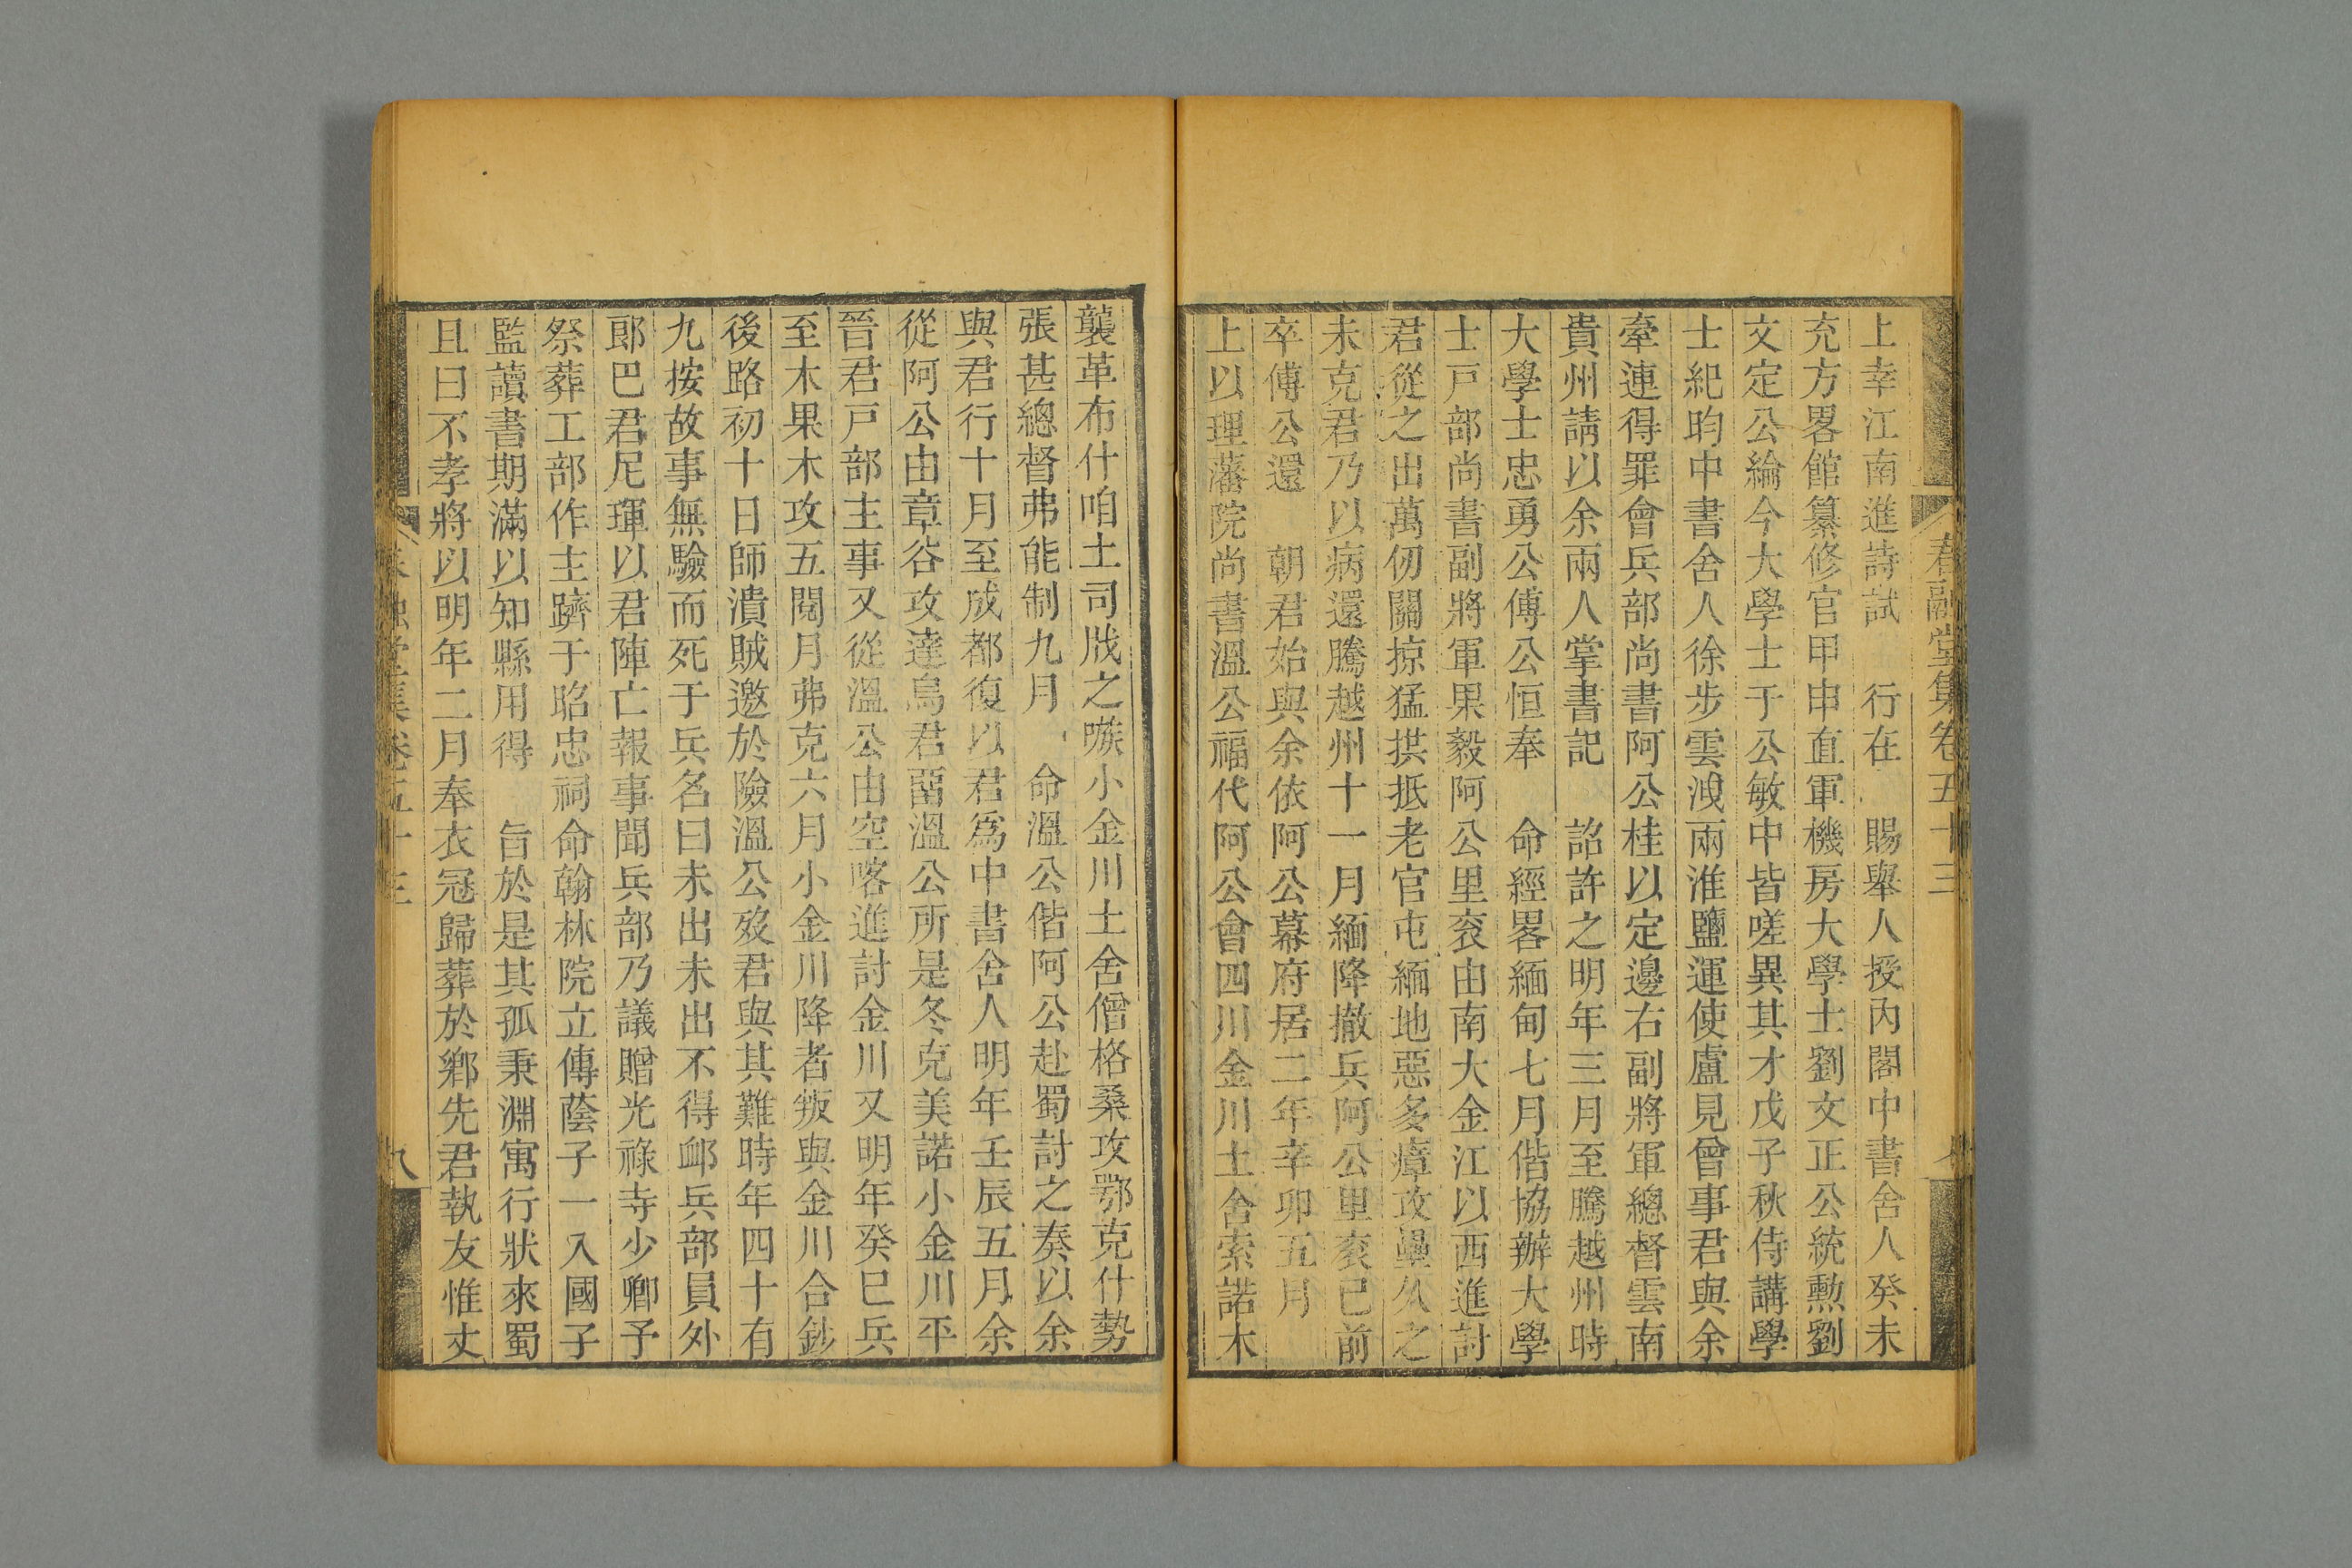 春融堂集卷五十三
上幸江南進詩試　行在　賜舉人授內閣中書舍人癸未
充方畧館纂修官甲申直軍機房大學士劉文正公統勲劉
文定公綸今大學士于公敏中皆嗟異其才戊子秋侍講學
士紀昀中書舍人徐步雲洩兩淮鹽運使盧見曾事君與余
牽連得罪會兵部尚書阿公桂以定邊右副將軍總督雲南
貴州請以余兩人掌書記　詔許之明年三月至騰越州時
大學士忠勇公傅公恒奉　命經畧緬甸七月偕協辦大學
士戸部尚書副將軍果毅阿公里袞由南大金江以西進討
君從之出萬仞關掠猛拱抵老官屯緬地惡多瘴攻壘久之
未克君乃以病還騰越州十一月緬降撤兵阿公里袞已前
卒傅公還　朝君始與余依阿公幕府居二年辛卯五月
上以理藩院尚書溫公福代阿公會四川金川土舍索諾木
襲革布什咱土司戕之嗾小金川土舍僧格桑攻鄂克什勢
張甚總督弗能制九月　命溫公偕阿公赴蜀討之奏以余
與君行十月至成都復以君爲中書舍人明年壬辰五月余
從阿公由章谷攻達烏君畱溫公所是冬克美諾小金川平
晉君戸部主事又從溫公由空喀進討金川又明年癸巳兵
至木果木攻五閱月弗克六月小金川降者叛與金川合鈔
後路初十日師潰賊邀於險溫公歿君與其難時年四十有
九按故事無驗而死于兵名曰未出未出不得䘏兵部員外
郎巴君尼琿以君陣亡報事聞兵部乃議贈光祿寺少卿予
祭葬工部作主躋于昭忠祠命翰林院立傳蔭子一入國子
監讀書期滿以知縣用得　旨於是其孤秉淵寓行狀來蜀
且曰不孝將以明年二月奉衣冠歸葬於鄉先君執友惟丈